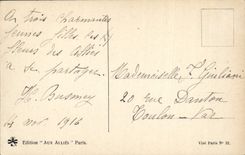 A trois charmantes
jeunes filles des
fleurs des Alliés
à se partager
4 nov 1916
Mademoiselle F. Giuliani
20 rue Danton
Toulon - Var
Edition "AUX ALLIÉS" Paris.
Visé Paris N°